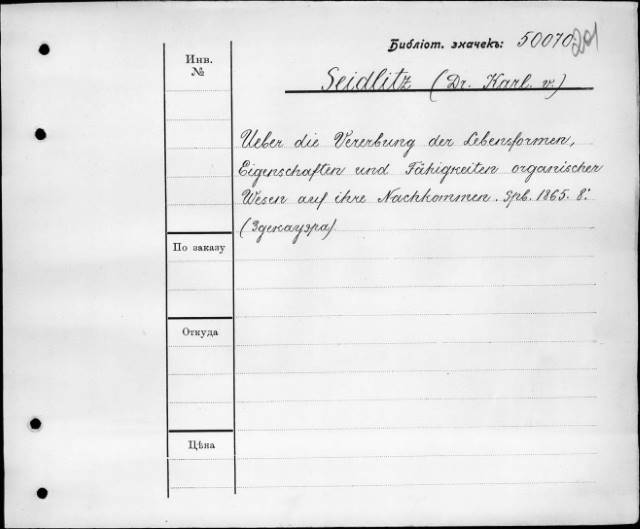 Библіот. значекъ: 50070 201
Инв.
№
Seidlitz (Dr. Karl. v.)
Ueber die Vererbung der Lebensformen,
Eigenschaften und Fähigkeiten organischer
Wesen auf ihre Nachkommen. Spb. 1865. 8º.
(Здекауэра)
По заказу
Откуда
Цѣна